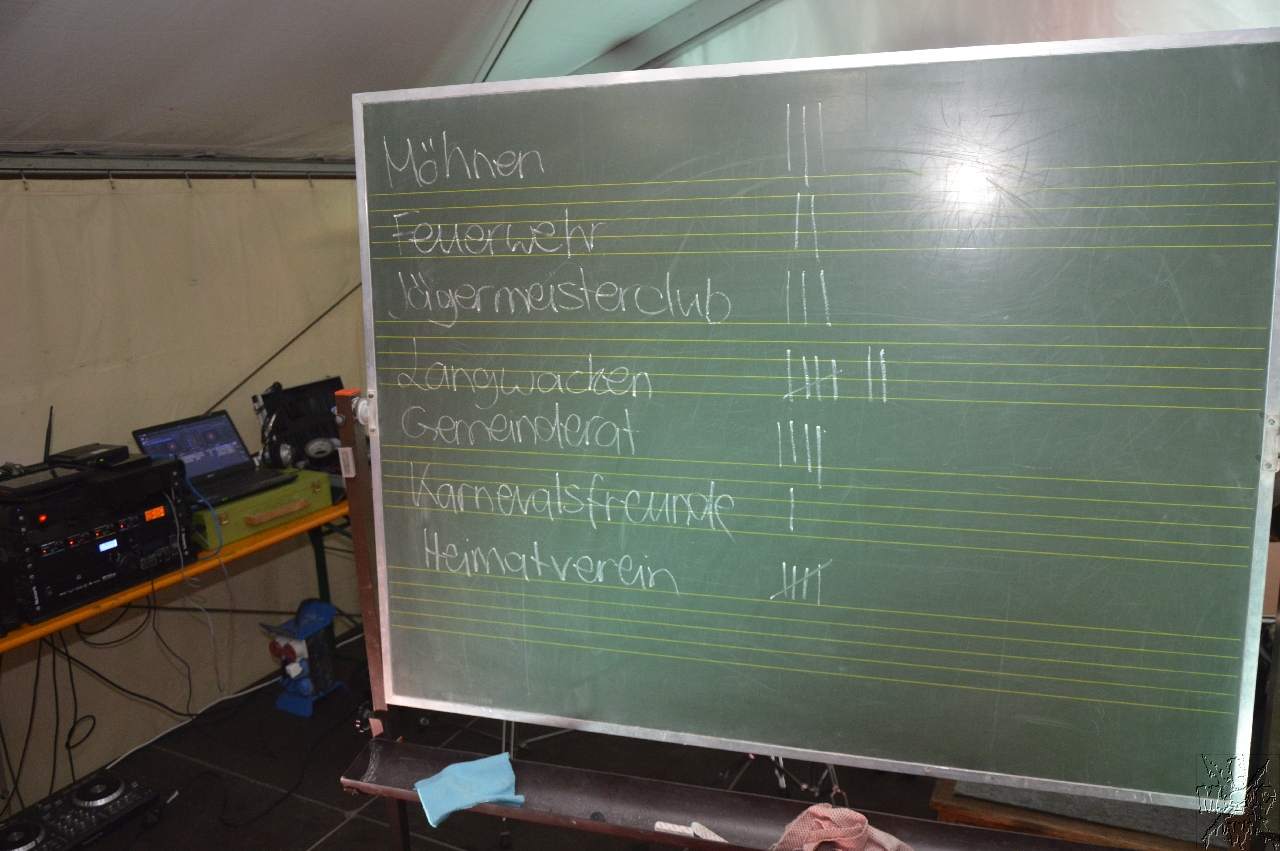 Möhnen |||
Feuerwehr ||
Jägermeisterclub |||
Langwacken |||| ||
Gemeinderat ||||
Karnevalsfreunde |
Heimatverein ||||